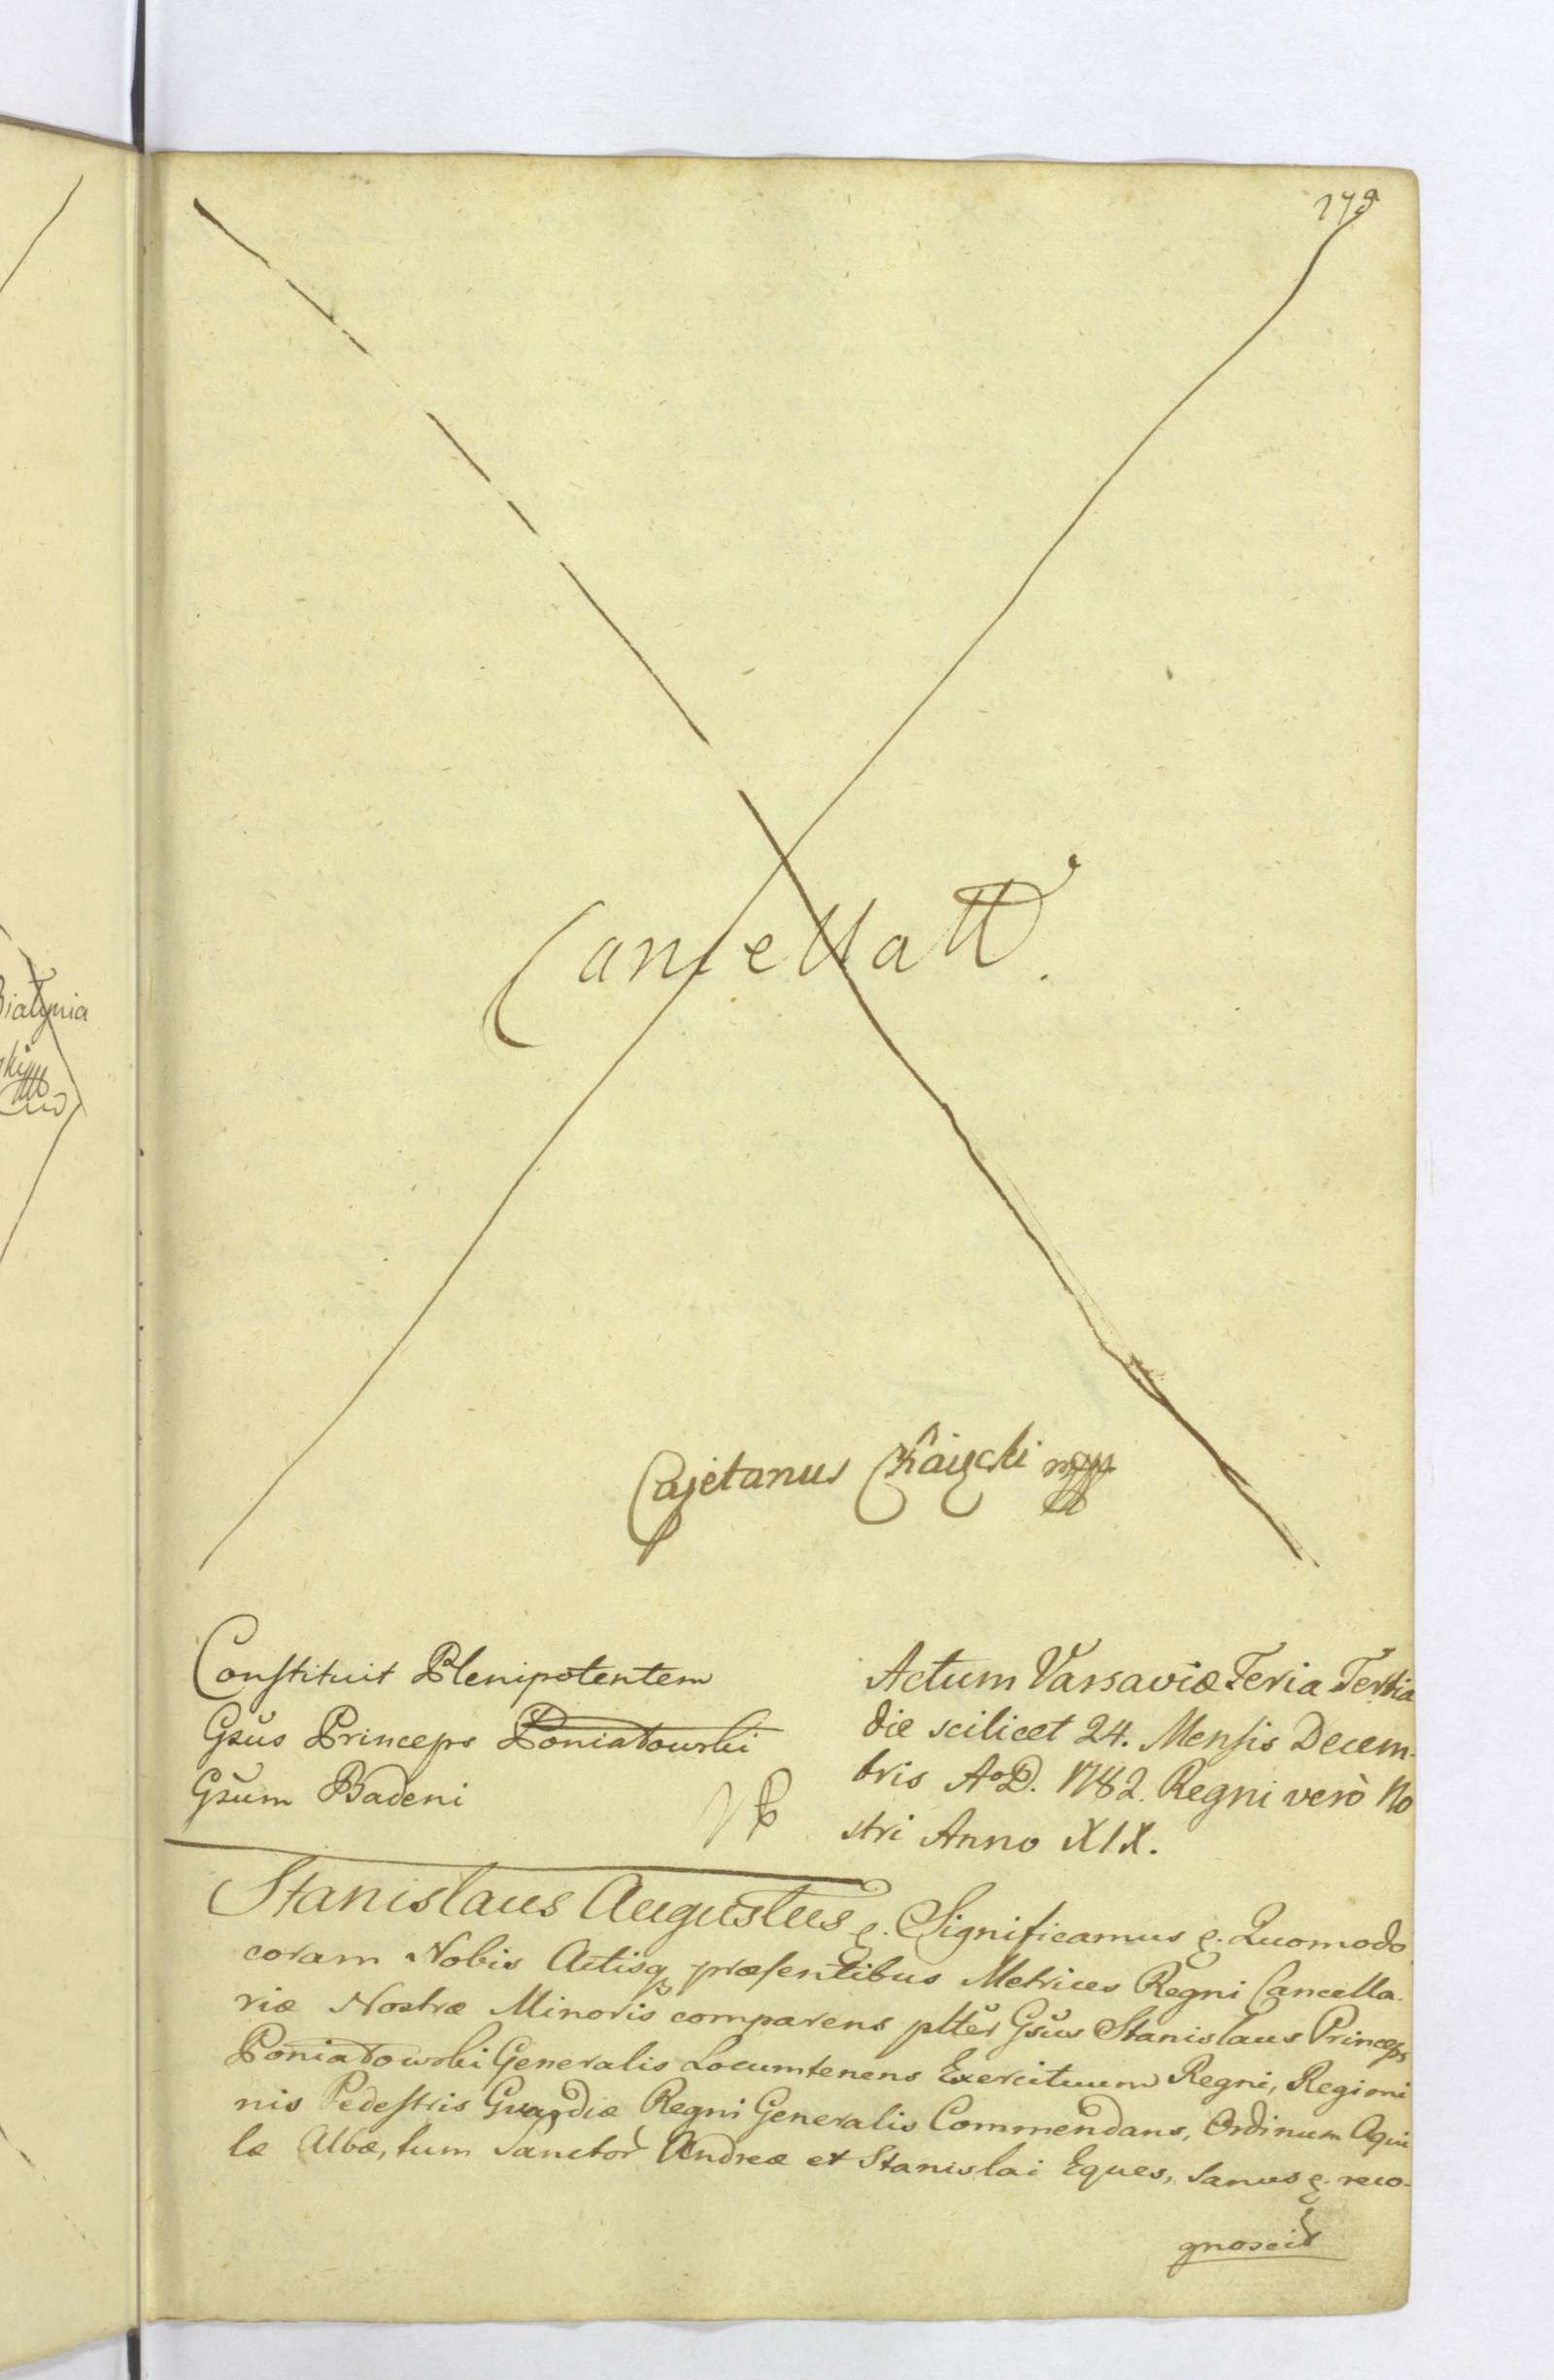 179
Cancellatt.
Cajetanus
Constituit Plenipotentem
Gsus Princeps Poniatowski
Gsum Badeni
Actum Varsaviæ Feria Tertia
die scilicet 24. Mensis Decem-
bris AoD. 1782. Regni verò No
stri Anno XIX.
Stanislaus Augustus Significamus Quomodo
coram Nobis Actisq præsentibus Metrices Regni Cancella-
riæ Nostræ Minoris comparens pltter Gsus Stanislaus Princeps
Poniatowski Generalis Locumtenens Exercituum Regni, Regimi
nis Pedestris Gvardiæ Regni Generalis Commendans, Ordinum Aqui
læ Albæ, tum Sanctor Andreæ et Stanislai Eques, Sanus reco-
gnoscit
Białynia